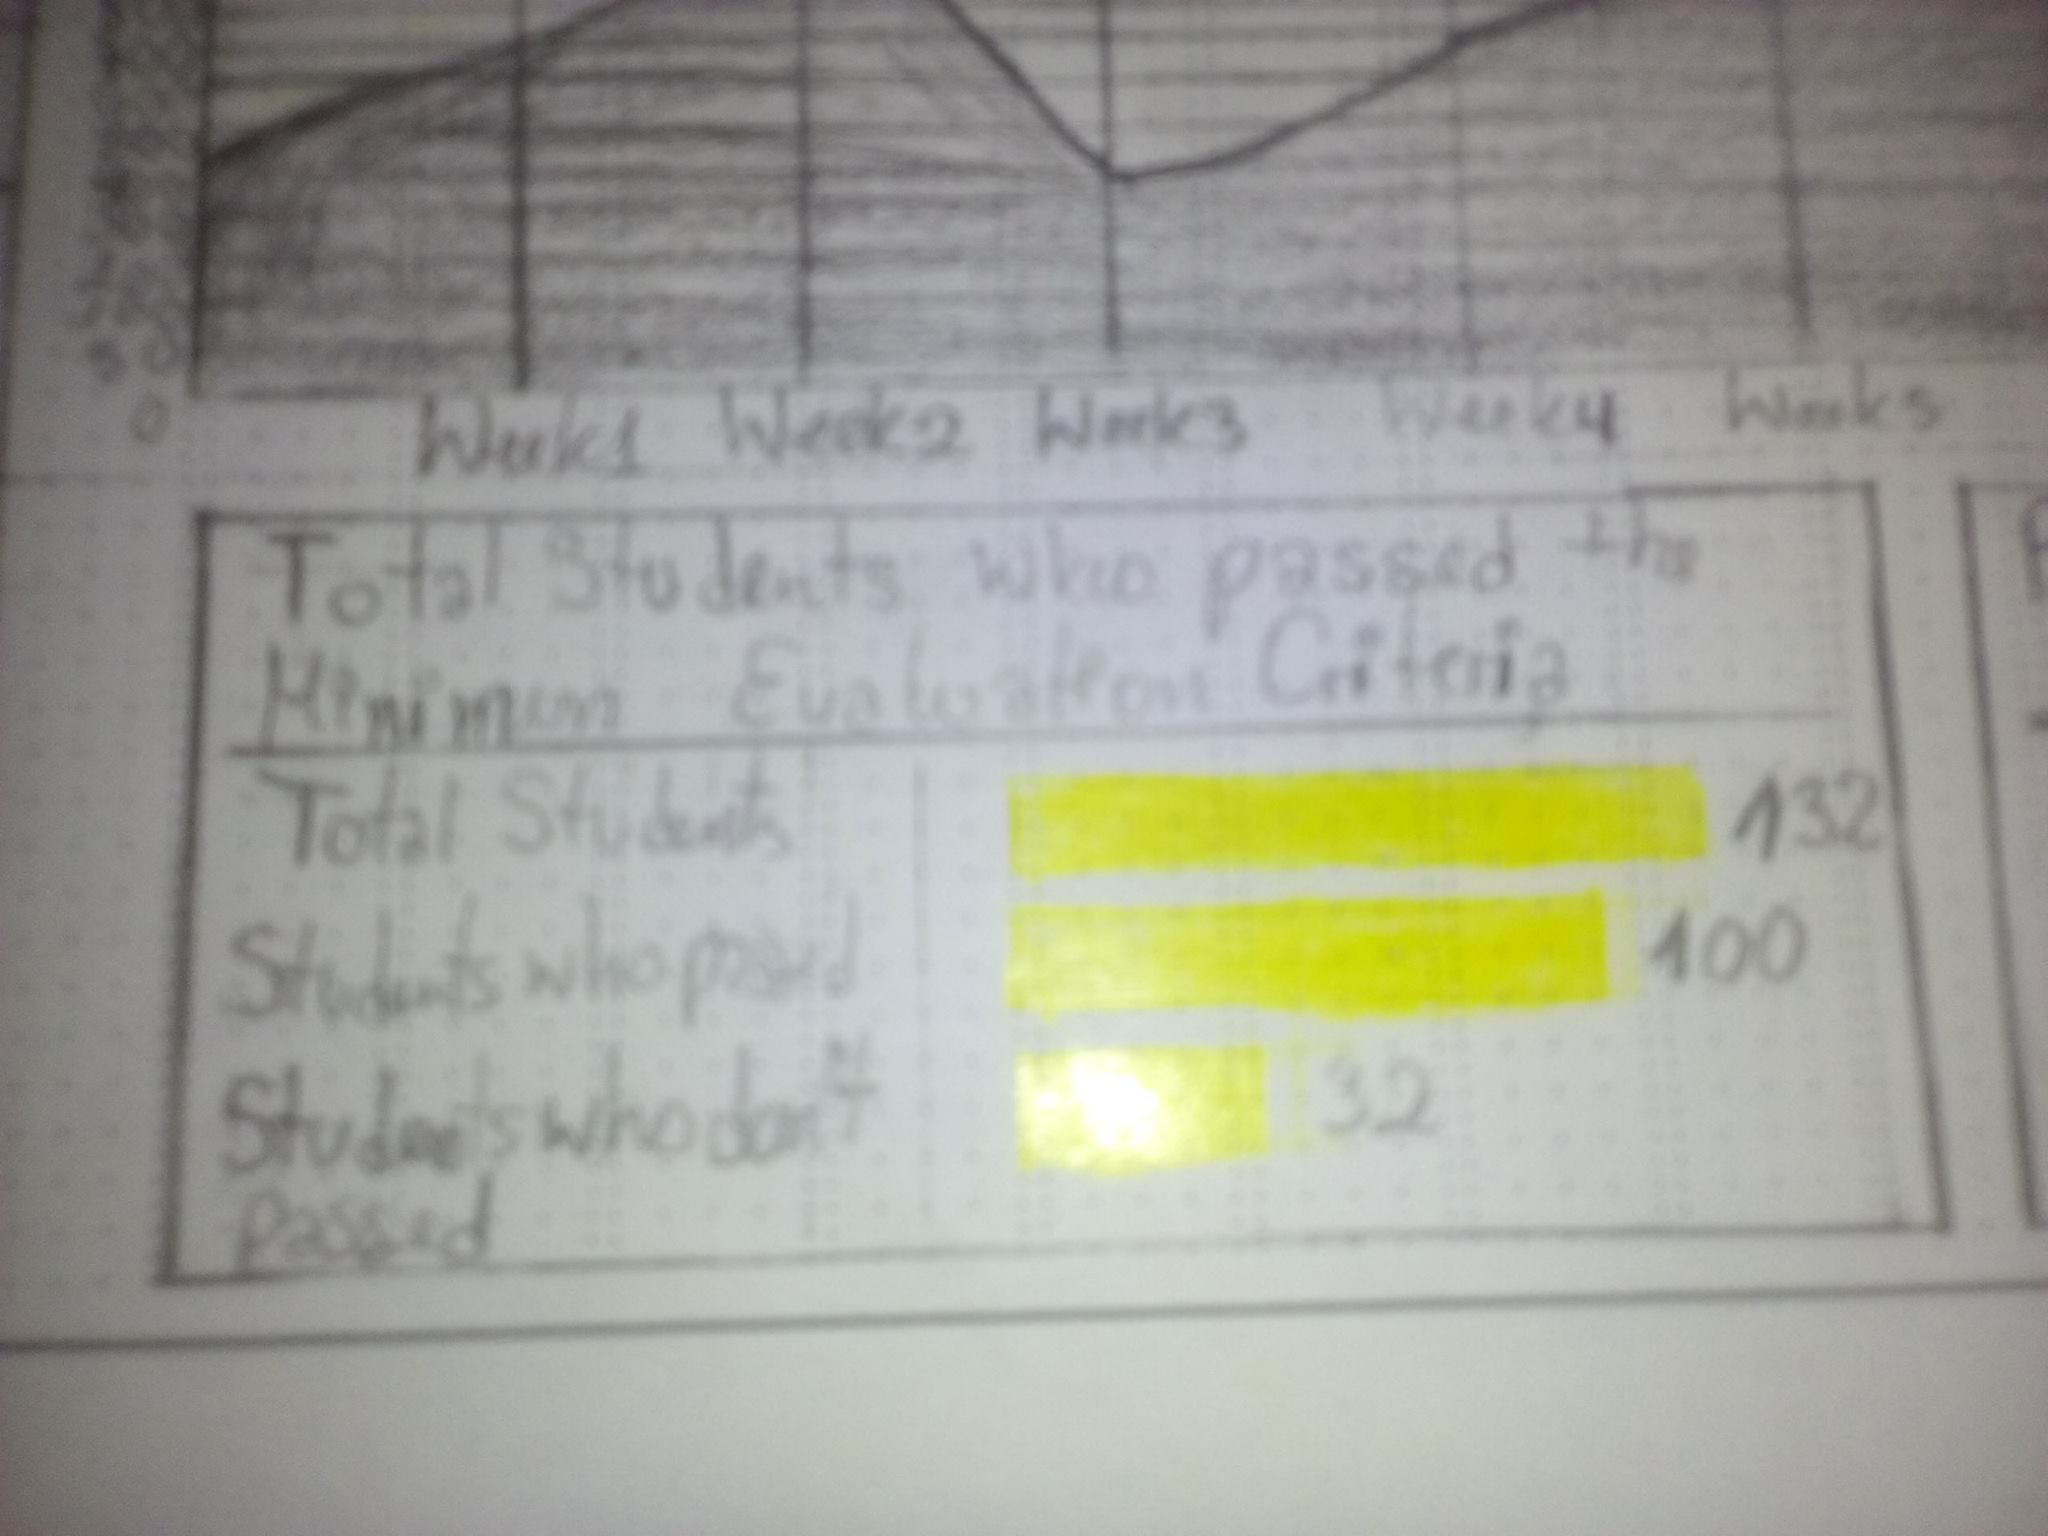 0
Week1 Week2 Week3 Week4 Week5
Total Students who passed the
Minimum Evaluation Criteria
Total Students 132
Students who passed 100
Students who don't 32
passed